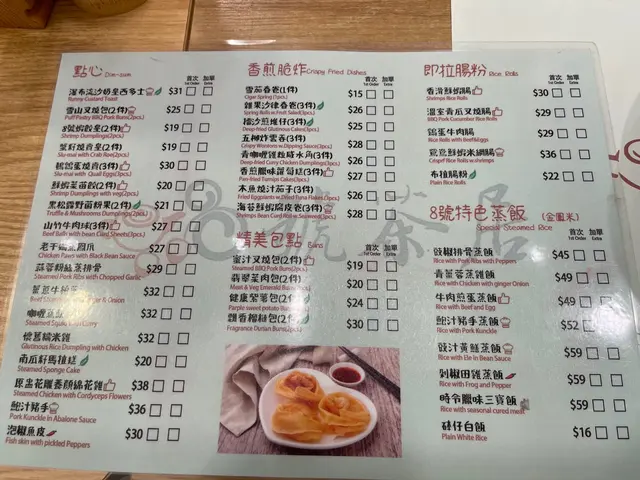 點心 Dim-sum
首次 加單
1st Order Extra
瀑布流沙奶皇西多士 $31
Runny Custard Toast
雪山叉燒包(2件) $25
Puff Pastry BBQ Pork Buns(2pcs.)
8號蝦餃皇(2件) $19
Shrimp Dumplings(2pcs.)
蟹籽燒賣皇(2件) $19
Siu-mai with Crab Roe(2pcs.)
鵪鶉蛋燒賣(3件) $30
Siu-mai with Quail Eggs(3pcs.)
鮮蝦菜苗餃(2件) $20
Shrimp Dumplings with veg(2pcs.)
黑松露野菌粉果(2件) $21
Truffle & Mushrooms Dumplings(2pcs.)
山竹牛肉球(3件) $27
Beef Balls with bean Curd Sheets(3pcs.)
$27
Chicken Paws with Black Bean Sauce
蒜蓉粉絲蒸排骨 $29
Steamed Pork Ribs with Chopped Garlic
$32
$32
懷舊糯米雞 $32
Glutinous Rice Dumpling with Chicken
南瓜籽馬拉糕 $20
Steamed Sponge Cake
$38
Steamed Chicken with Cordyceps Flowers
鮑汁豬手 $36
Pork Kunckle in Abalone Sauce
泡椒魚皮 $30
Fish skin with pickled Peppers
香煎脆炸 Crispy Fried Dishes
首次 加單
1st Order Extra
雪茄春卷(1件) $15
Cigar Spring (1pcs.)
雜果沙律春卷(3件) $26
Spring Rolls w Fruit Salad(3pcs.)
$25
Deep-fried Glutinous Cakes(3pcs.)
五柳炸雲吞(3件) $28
Crispy Wontons w Dipping Sauce(3pcs.)
青咖喱雞粒咸水角(3件) $26
Deep-fried Curry Chicken Dumplings(3pcs.)
香煎臘味蘿蔔糕(3件) $27
Pan-fried Turnips Cakes(3pcs.)
木魚燒汁茄子(3件) $26
Fried Eggplants w Dried Tuna Flakes(3pcs.)
海苔鮮蝦腐皮卷(3件) $28
Shrimps Bean Curd Roll w Seaweed(3pcs.)
精美包點 Buns
首次 加單
1st Order Extra
蜜汁叉燒包(2件) $19
Steamed BBQ Pork Buns(2pcs.)
翡翠菜肉包(2件) $20
Meat & Veg Emerald Buns(2pcs.)
健康紫薯包(2件) $24
Purple sweet potato Buns(2pcs.)
飄香榴槤包(2件) $30
Fragrance Durian Buns(2pcs.)
即拉腸粉 Rice Rolls
首次 加單
1st Order Extra
香滑鮮蝦腸 $30
Shrimps Rice Rolls
溫室青瓜叉燒腸 $29
BBQ Pork Cucumber Rice Rolls
鵪蛋牛肉腸 $29
Rice Rolls with Beef&Eggs
鴛鴦鮮蝦米網腸 $36
Crispef Rice Rolls w shrimps
布拉腸粉 $22
Plain Rice Rolls
8號特色蒸飯 (金鳳米)
Special Steamed Rice
首次 加單
1st Order Extra
豉椒排骨蒸飯 $45
Rice with Pork Ribs with Peppers
青薑蓉蒸雞飯 $49
Rice with Chicken with ginger Onion
牛肉煎蛋蒸飯 $49
Rice with Beef and Egg
鮑汁豬手蒸飯 $52
Rice with Pork Kunckle
豉汁黃鱔蒸飯 $59
Rice with Ele in Bean Sauce
剁椒田雞蒸飯 $59
Rice with Frog and Pepper
時令臘味三寶飯 $59
Rice with seasonal cured meat
砵仔白飯 $16
Plain White Rice
8號茶居